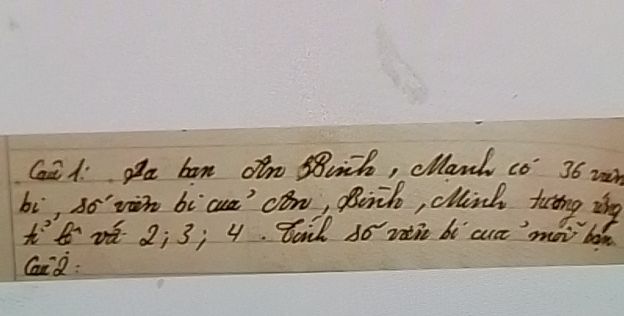 Câu 1: Ba bạn An Bình, Mạnh có 36 viên
bi, số viên bi của An, Bình, Minh tương ứng
tỉ lệ và 2; 3; 4. Tính số viên bi của mỗi bạn.
Câu 2: